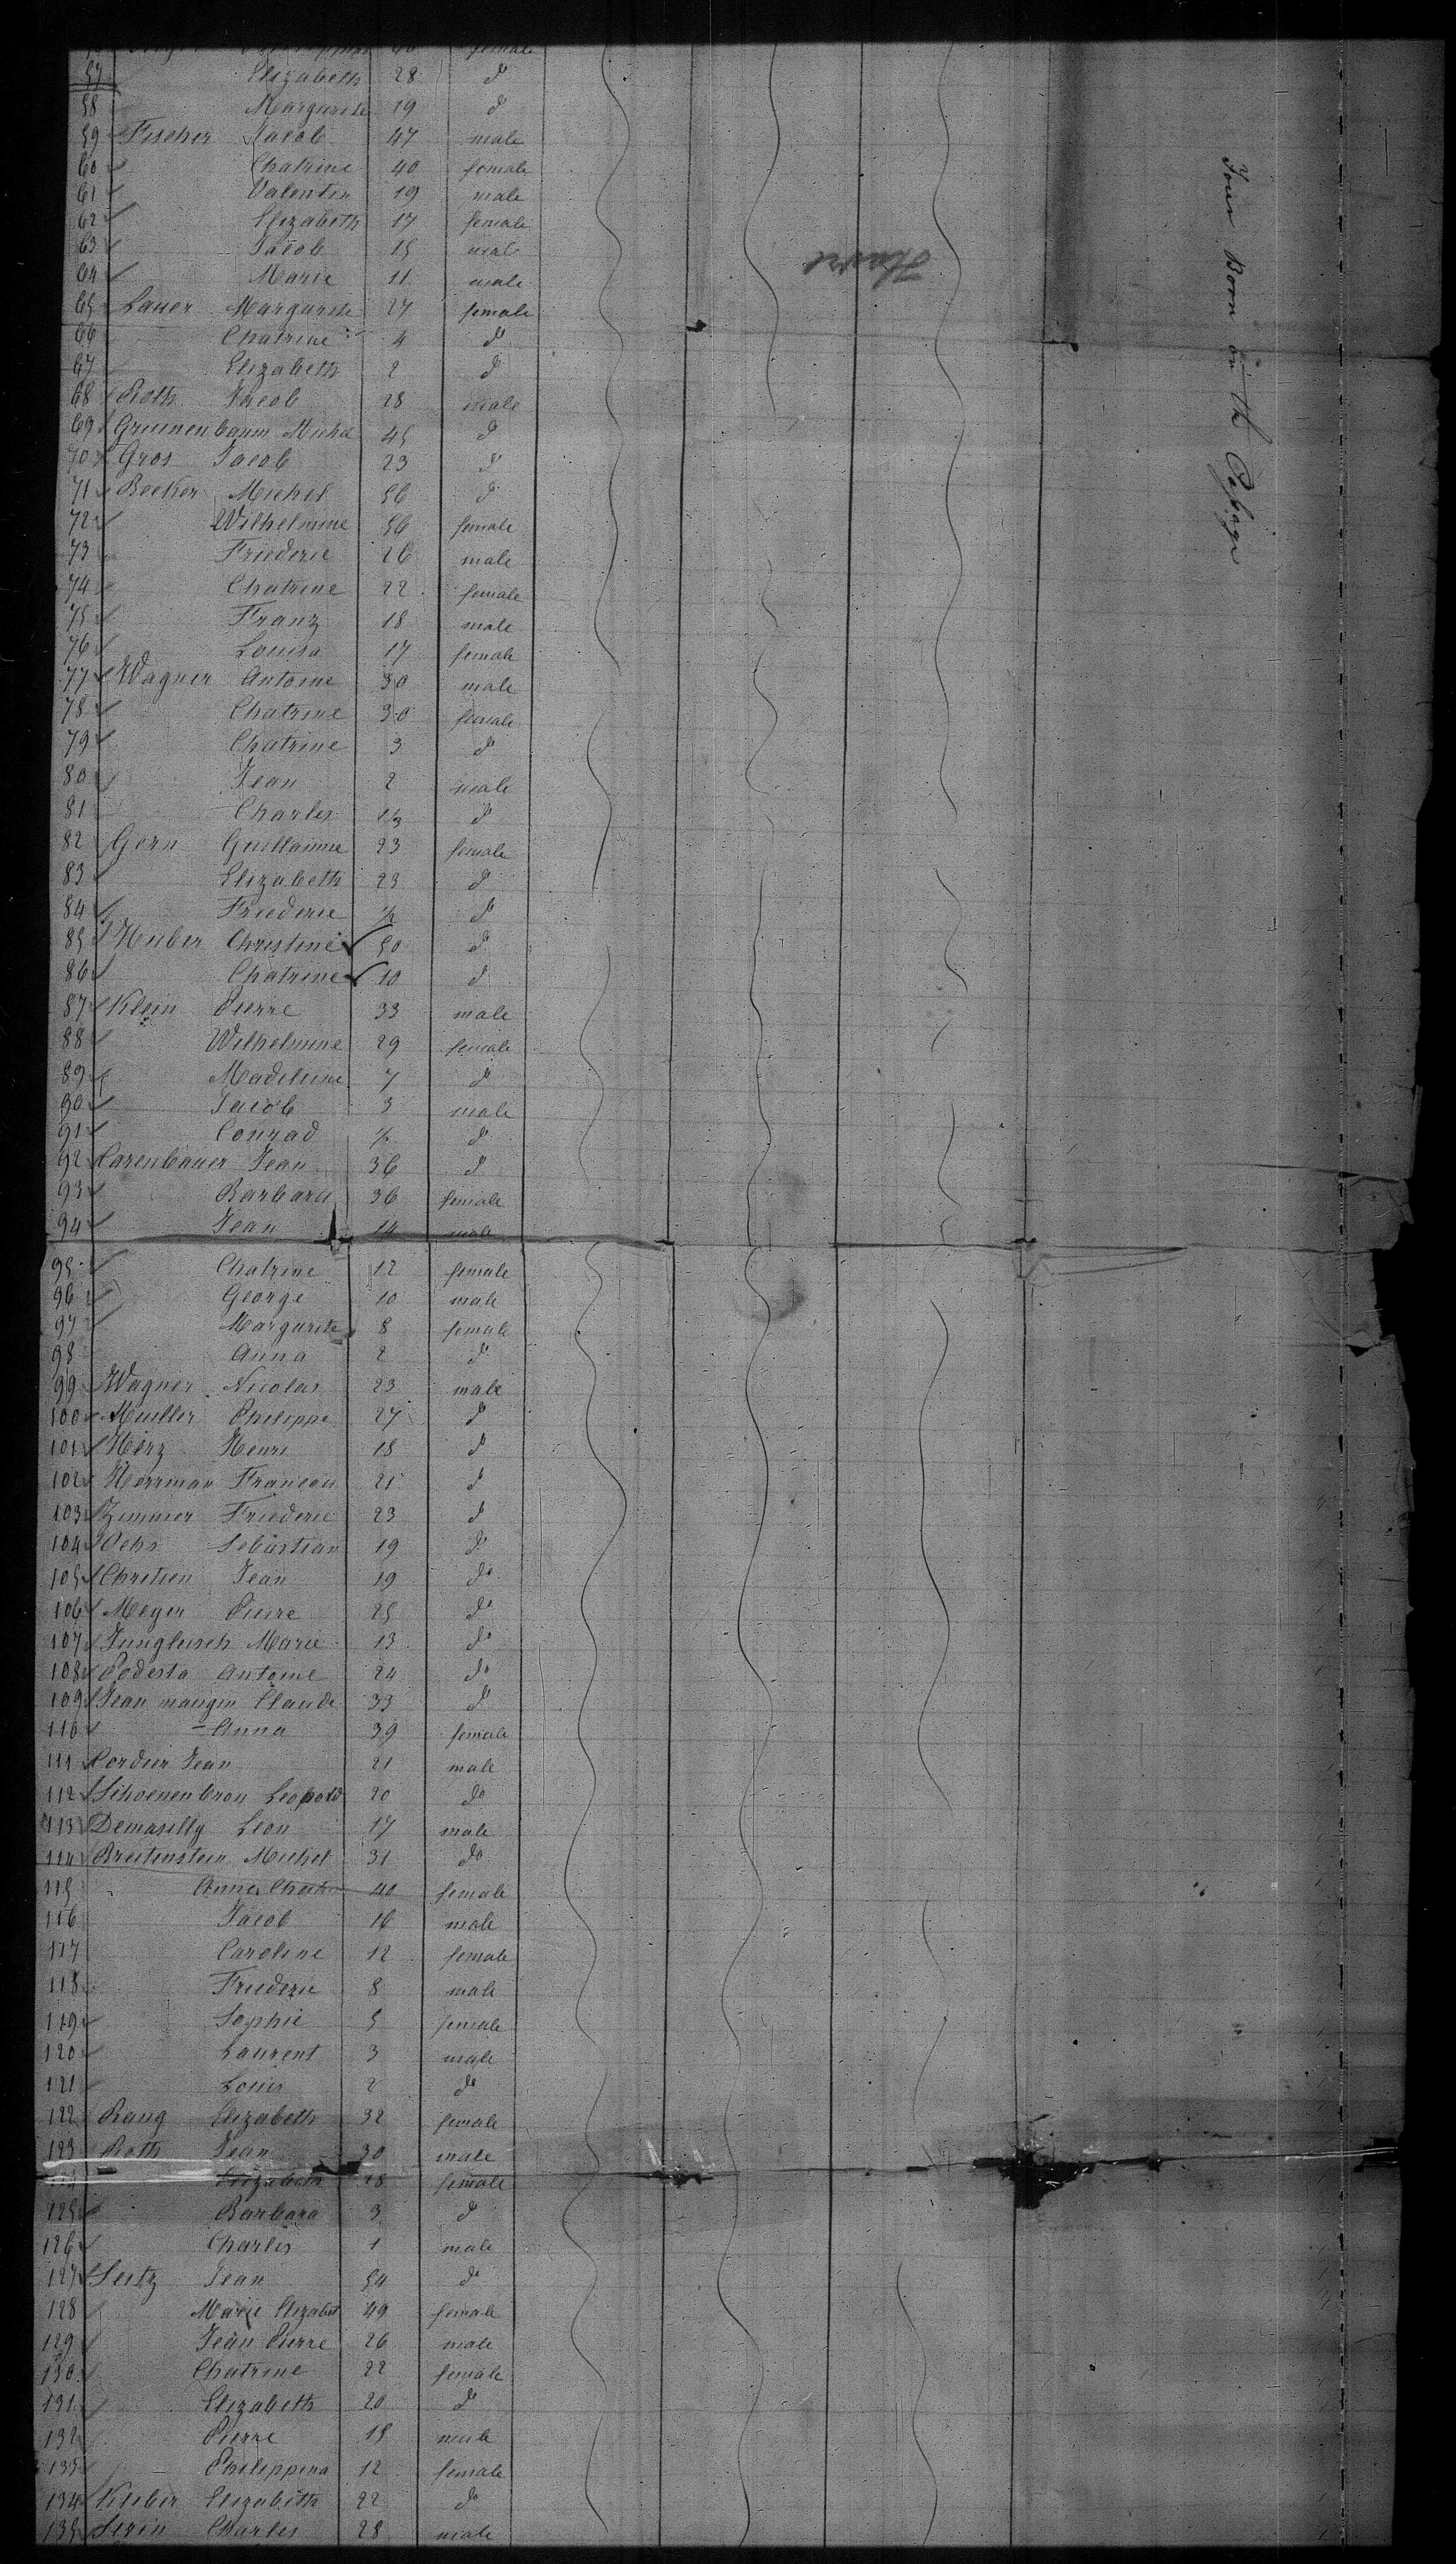 female
57 Elizabeth 28 do
58 Margurete 19 do
59 Fischer Jacob 47 male
60 Chatrine 40 female
61 Valentin 19 male
62 Elizabeth 17 female
63 Jacob 15 male
64 Marie 11 male
65 Lauer Margurete 27 female
66 Chatrine 4 do
67 Elizabeth 2 do
68 Roth Jacob 28 male
69 Gruenenbaum Michel 45 do
70 Gros Jacob 23 do
71 Becker Michel 56 do
72 Wilhelmine 56 female
73 Friederic 26 male
74 Chatrine 22 female
75 Franz 18 male
76 Louisa 17 female
77 Wagner Antoine 30 male
78 Chatrine 30 female
79 Chatrine 3 do
80 Jean 2 male
81 Charles 1/3 do
82 Gorn Guillaume 23 female
83 Elizabeth 23 do
84 Friederic 1/2 do
85 Huber Christine 50 do
86 Chatrine 10 do
87 Klein Pierre 33 male
88 Wilhelmine 29 female
89 Madeleine 7 do
90 Jacob 3 male
91 Conrad 1/2 do
92 Carenbauer Jean 36 do
93 Barbara 36 female
94 Jean 14 male
95 Chatrine 12 female
96 George 10 male
97 Margurete 8 female
98 Anna 2 do
99 Wagner Nicolas 23 male
100 Muller Philippe 27 do
101 Herz Henri 18 do
102 Herrman Francois 21 do
103 Zimmer Friederic 23 do
104 Ochs Sebastian 19 do
105 Chretien Jean 19 do
106 Meyer Pierre 25 do
107 Jungluseh Marie 13 do
108 Podesta Antoine 24 do
109 Jean mangin Claude 33 do
110 Anna 39 female
111 Cordier Jean 21 male
112 Schoenenbron Leopold 20 do
113 Demasilly Leon 17 male
114 Breitenstein Michel 31 do
115 Anne Chatr 40 female
116 Jacob 16 male
117 Caroline 12 female
118 Friederic 8 male
119 Sophie 5 female
120 Laurent 3 male
121 Louis 2 do
122 Rang Elizabeth 32 female
123 Roth Jean 30 male
124 Elizabeth 28 female
125 Barbara 3 do
126 Charles 1 male
127 Seitz Jean 54 do
128 Marie Elizabet 49 female
129 Jean Pierre 26 male
130 Chatrine 22 female
131 Elizabeth 20 do
132 Pierre 15 male
133 Philippina 12 female
134 Kieber Elizabeth 22 do
135 Charles 28 male
Havre
Four Born on th Passage